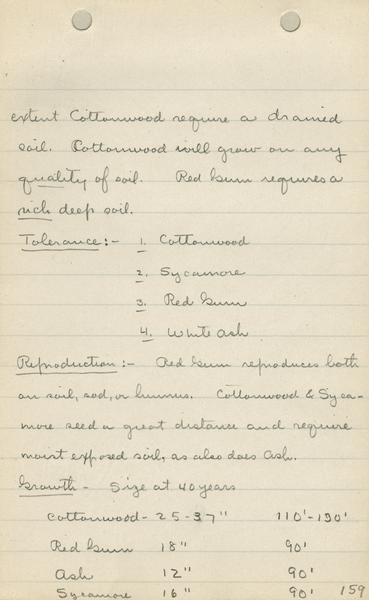 extent Cottonwood require a drained
soil. Cottonwood will grow on any
quality of soil. Red Gum requires a
rich deep soil.
Tolerance:- 1. Cottonwood
2. Sycamore
3. Red Gum
4. White Ash
Reproduction:- Red Gum reproduces both
on soil, sod, or humus. Cottonwood & Syca-
more seed a great distance and require
moist exposed soil, as also does Ash.
Growth - Size at 40 years
Cottonwood - 25-37" 110'-130'
Red Gum 18" 90'
Ash 12" 90'
Sycamore 16" 90' 159